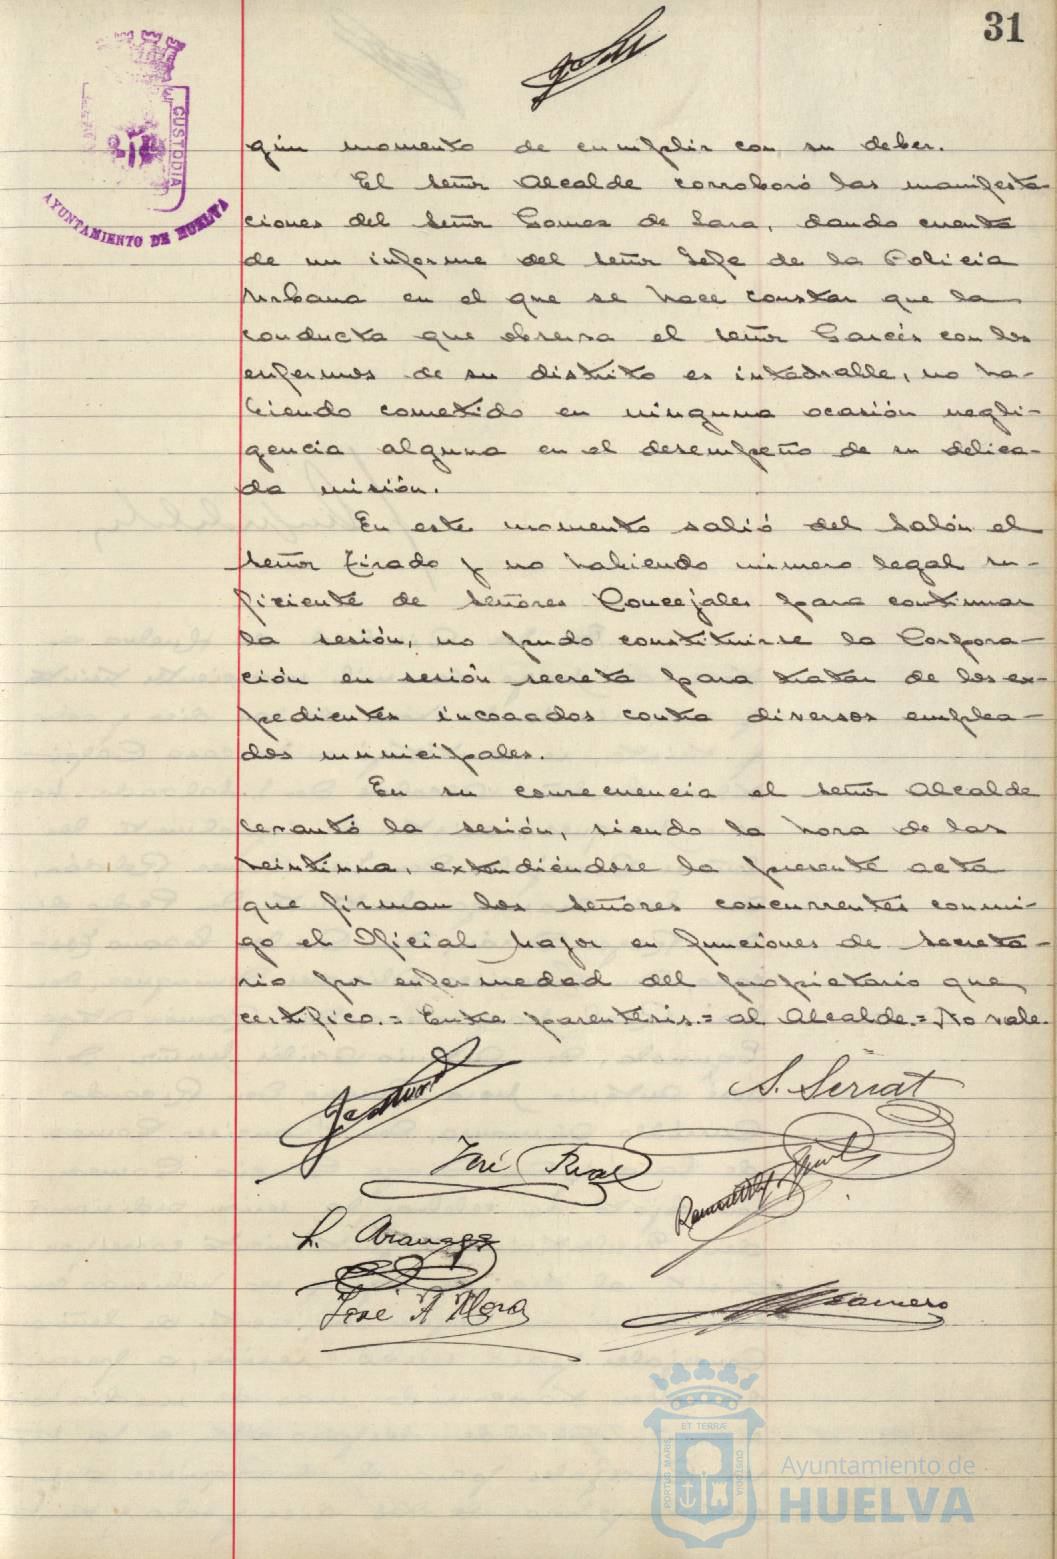 31
CUSTODIA
AYUNTAMIENTO DE HUELVA
gún momento de cumplir con su deber.
El señor Alcalde corroboró las manifesta
ciones del señor Gomez de Lara, dando cuenta
de un informe del señor Jefe de la Policia
Urbana en el que se hace constar que la
conducta que observa el señor Garcés con los
enfermos de su distrito es intachable, no ha-
biendo cometido en ninguna ocasión negli-
gencia alguna en el desempeño de su delica-
da misión.
En este momento salió del Salón el
señor Tirado y no habiendo número legal su-
ficiente de señores Concejales para continuar
la sesión, no pudo constituirse la Corpora-
ción en sesión secreta para tratar de los ex-
pedientes incoados contra diversos emplea-
dos municipales.
En su consecuencia el señor Alcalde
levantó la sesión, siendo la hora de las
veintiuna, extendiéndose la presente acta
que firman los señores concurrentes conmi-
go el Oficial Mayor en funciones de Secreta-
rio por enfermedad del propietario que,
certifico.= Entre parentesis.= al Alcalde.= No vale.
S. Serrat
José Real
L. Aranaga
José A Mora
ET TERRÆ
PORTUS MARIS
CUSTODIA
Ayuntamiento de
HUELVA